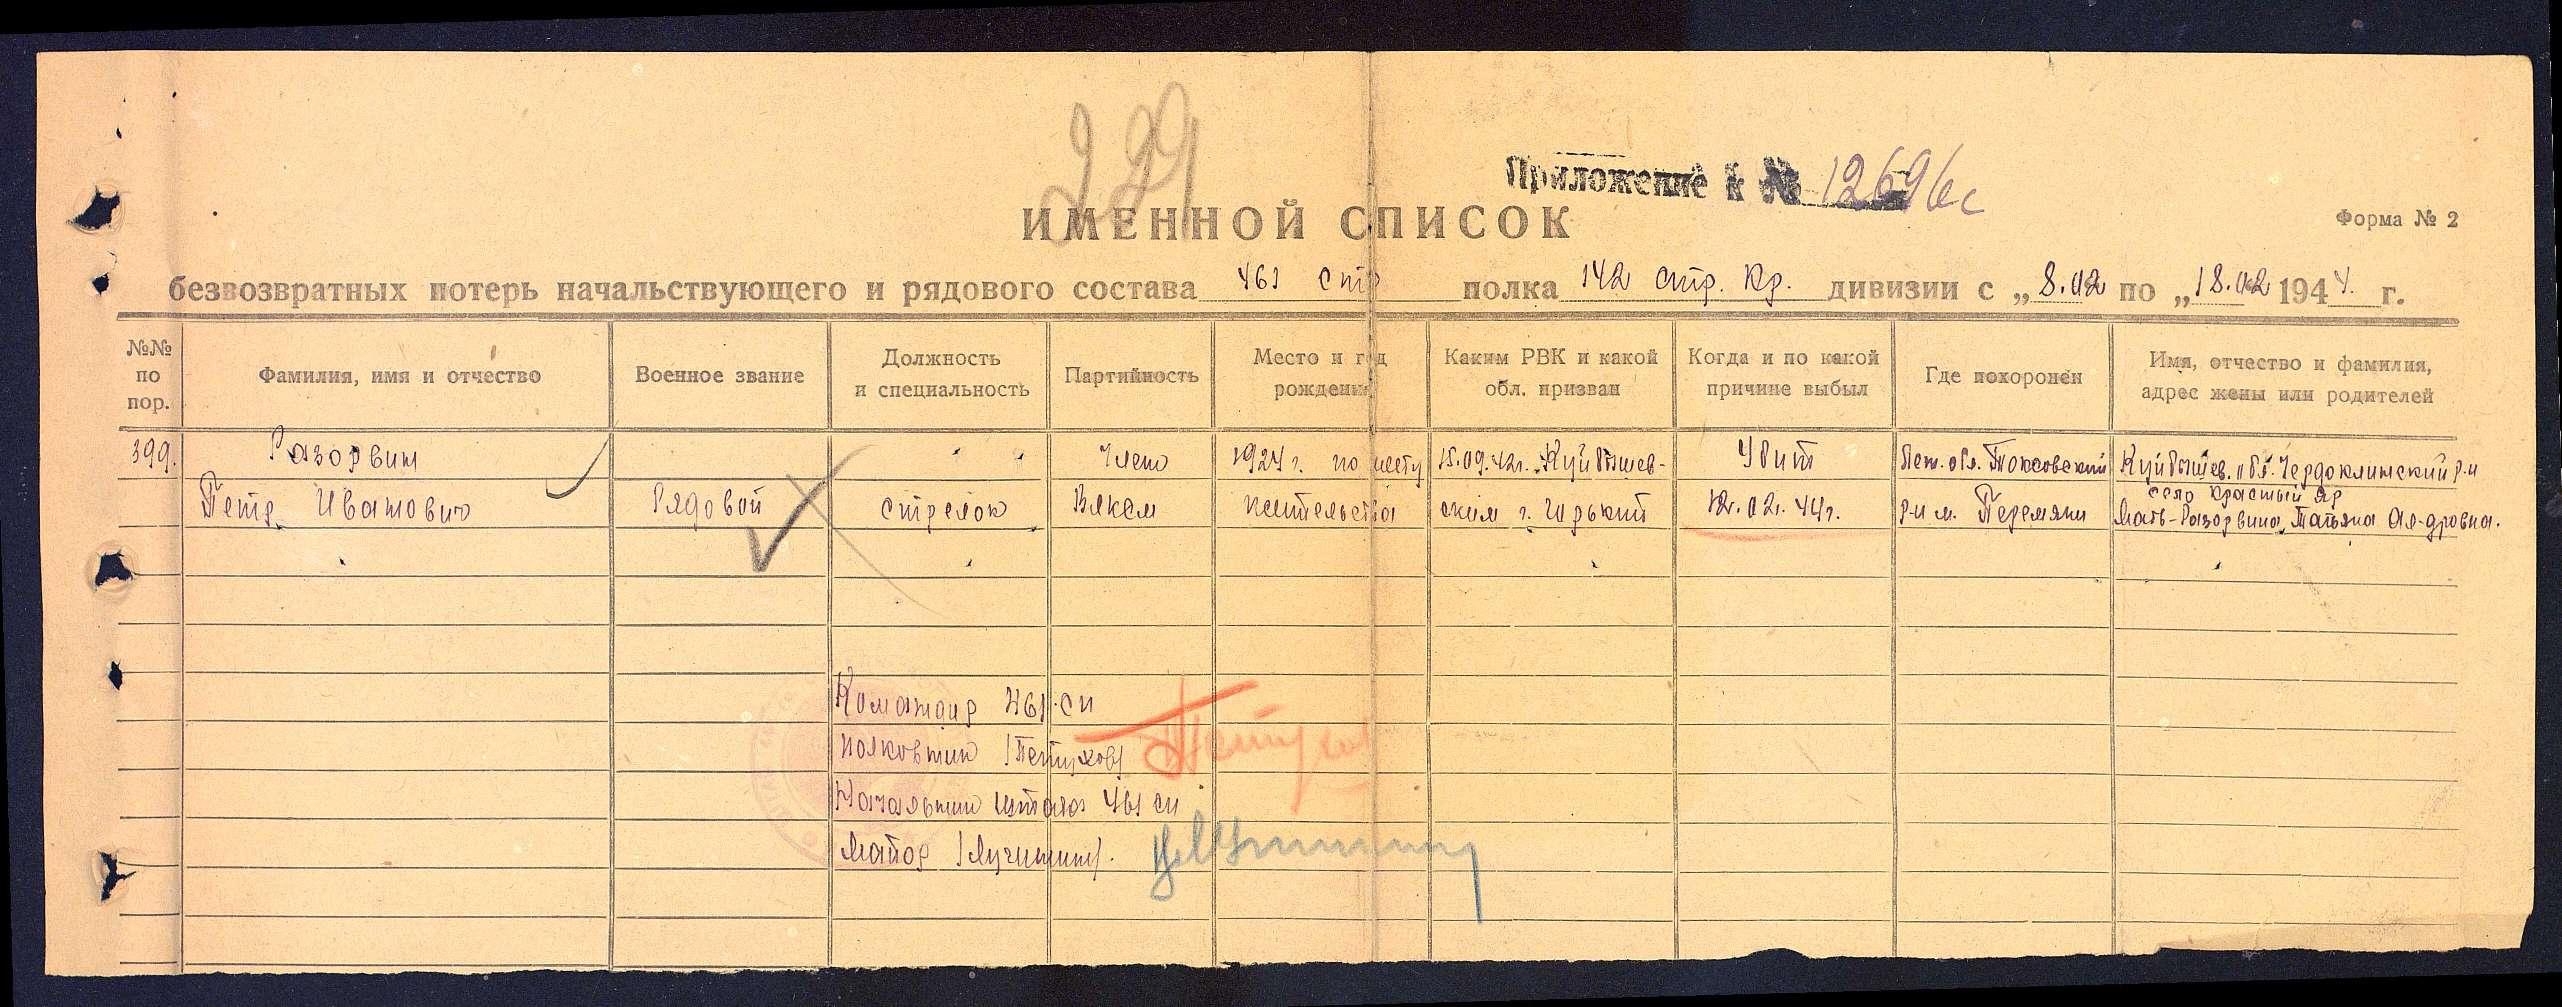 229
Приложение к № 12696с
ИМЕННОЙ СПИСОК
Форма № 2
безвозвратных потерь начальствующего и рядового состава 461 стр полка 142 стр. Кр. дивизии с „ 8.02 по „ 18.02 1944. г.
№№ по пор.
Фамилия, имя и отчество
Военное звание
Должность и специальность
Партийность
Место и год рождения
Каким РВК и какой обл. призван
Когда и по какой причине выбыл
Где похоронен
Имя, отчество и фамилия, адрес жены или родителей
399. Разорвин Член 1924 г. по месту 15.09.42г. Куйбышев- Убит Лен. обл. Токсовский Куйбышев. обл. Чердоклинский р-н
село Красный Яр
Петр Иванович Рядовой стрелок Влксм жительства ским г. Горький 12.02.44г. р-н м. Перемяки Мать-Разорвина Татьяна Ал-дровна.
Командир 461 сп
полковник /Петухов/
Начальник штаба 461 сп
Майор /Лучинин/.